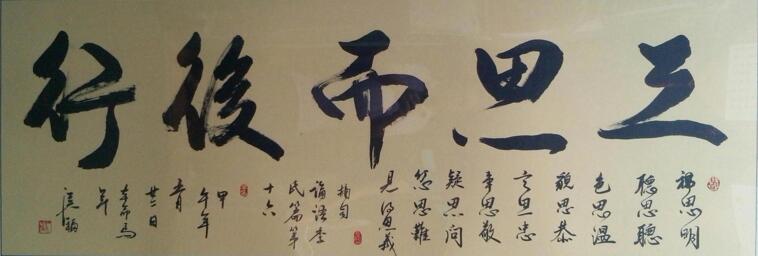 三思而後行
視思明
聽思聰
色思溫
貌思恭
言思忠
事思敬
疑思問
忿思難
見得思義
摘句
論語季
氏篇第
十六
甲
午年
廿二日